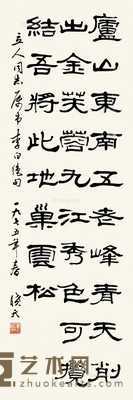 廬山東南五老峰青天削
出金芙蓉九江秀色可攬
結吾將此地巢雲松
立人同志屬書李白絕句
一九七五年春